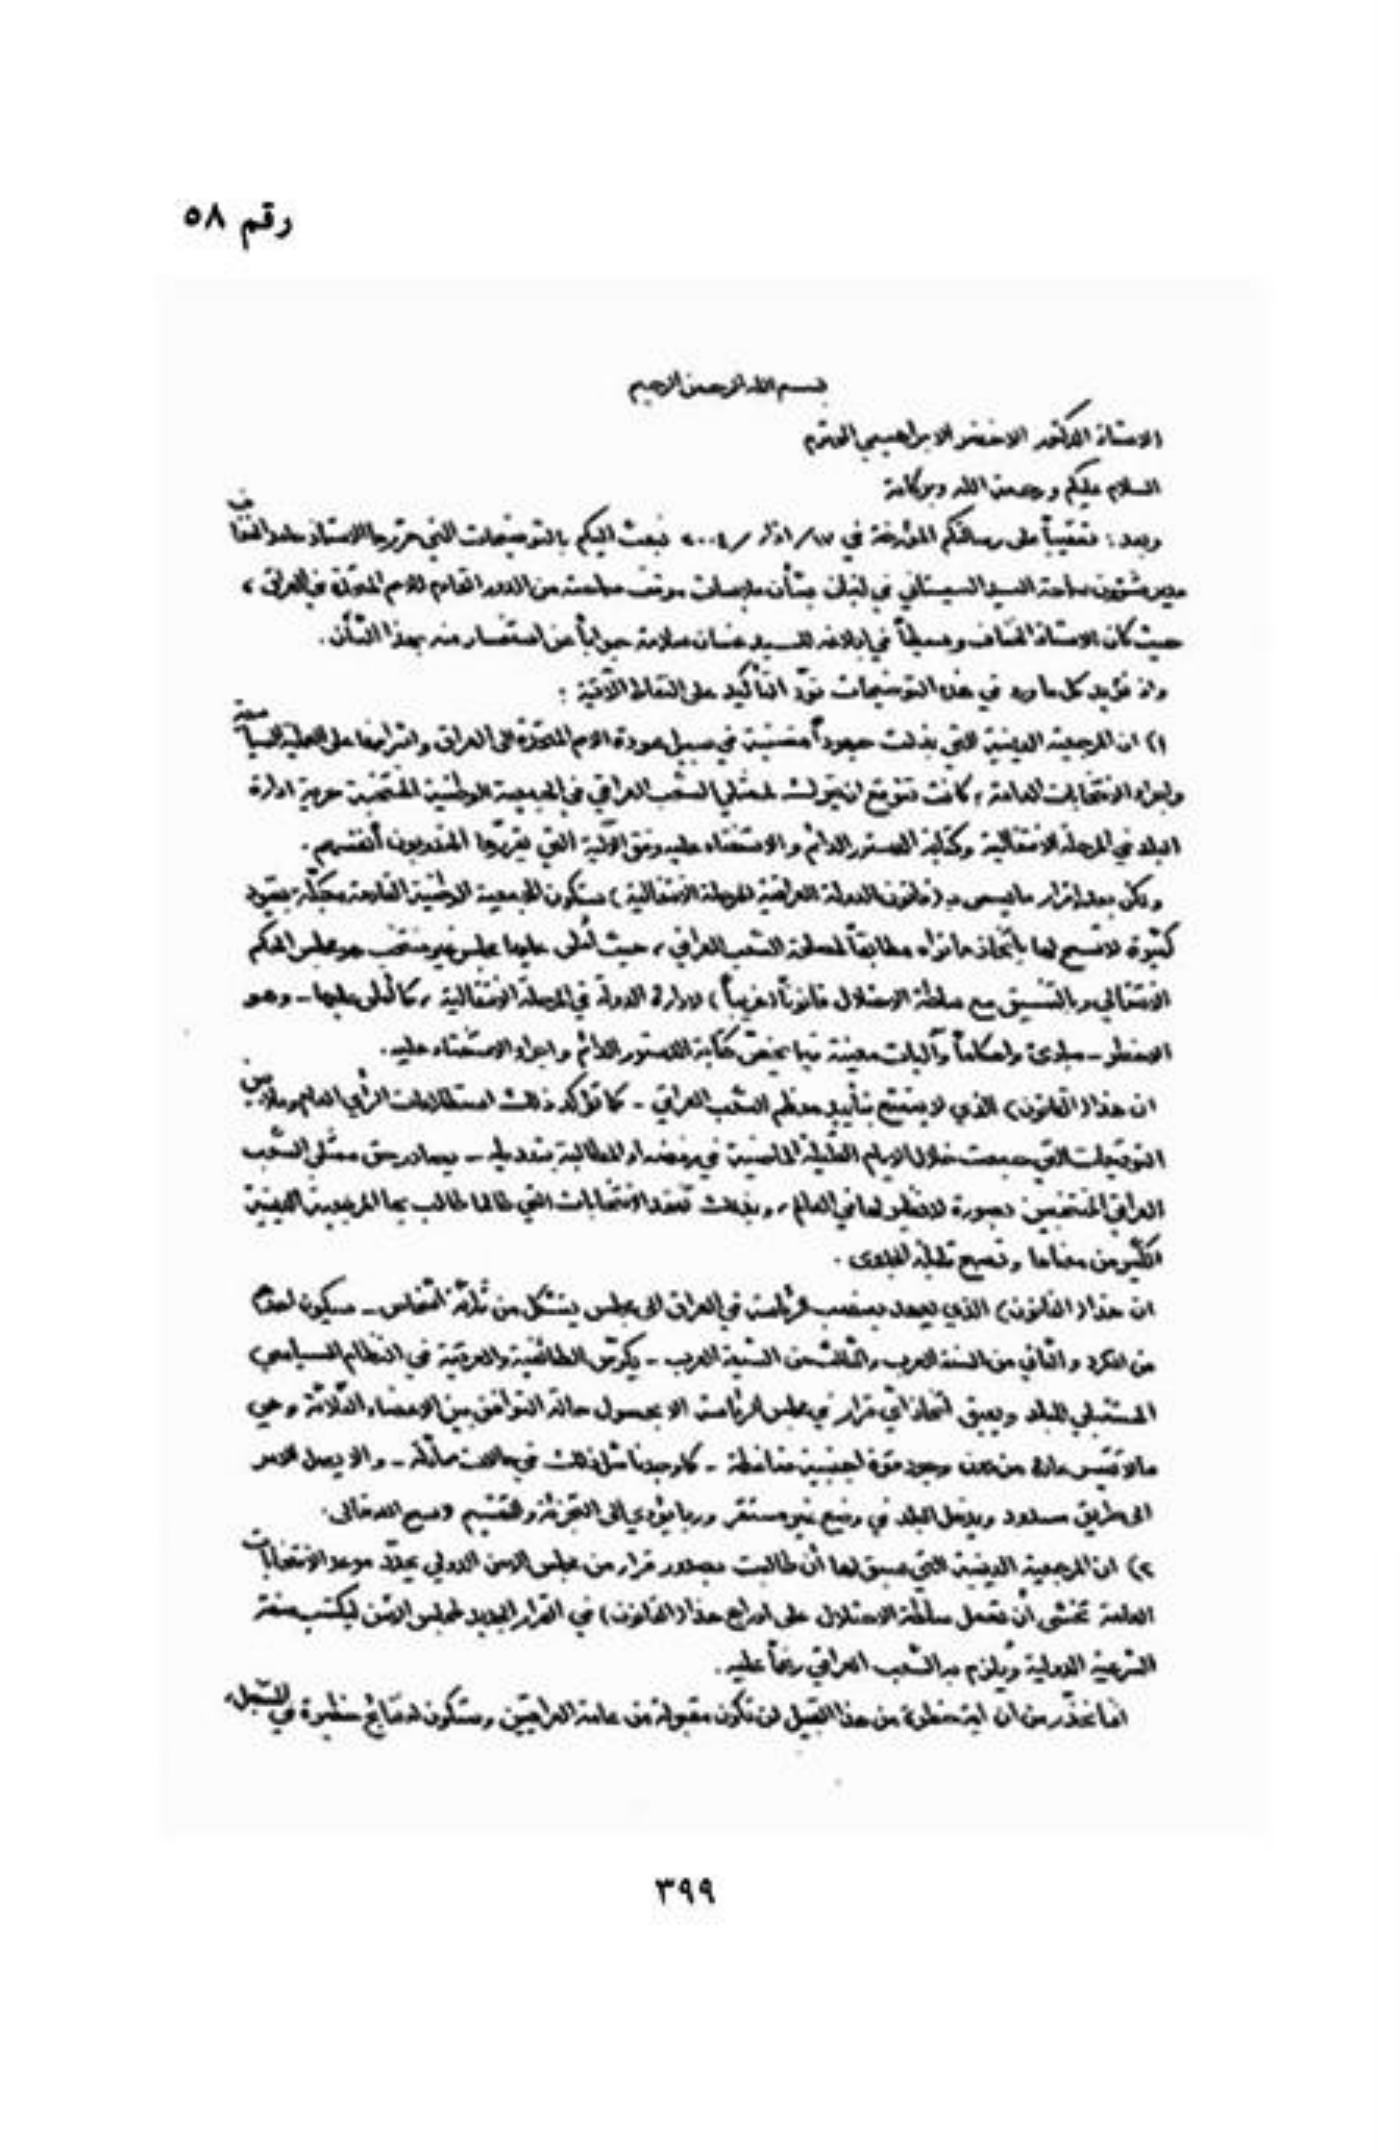 رقم ٥٨
بسم الله الرحمن الرحيم
الاستاذ الدكتور الاخضر الابراهيمي المحترم
السلام عليكم ورحمة الله وبركاته
وبعد: تعقيباً على رسالتكم المؤرخة في ١٧/اذار/٢٠٠٤ نبعث اليكم بالتوضيحات التي حرّرها الاستاذ حامد الخفاف
مدير شؤون سماحة السيد السيستاني في لبنان بشأن ملابسات موقف سماحته من الدور القادم للامم المتحدة في العراق ،
حيث كان الاستاذ الخفاف وسيطاً في ابلاغه للسيد غسان سلامة جواباً عن استفسار منه بهذا الشأن .
واذ نؤيد كل ما ورد في هذه التوضيحات نودّ التأكيد على النقاط الآتية :
١) ان المرجعية الدينية التي بذلت جهوداً مضنية في سبيل عودة الامم المتحدة الى العراق واشرافها على العملية السياسية
واجراء الانتخابات العامة ، كانت تتوقع ان يترك لممثلي الشعب العراقي في الجمعية الوطنية المنتخبة حرية ادارة
البلد في المرحلة الانتقالية وكتابة الدستور الدائم والاستفتاء عليه وفق الآلية التي يقررها المندوبون أنفسهم .
ولكن بعد اقرار ما يسمى بـ (قانون الدولة العراقية للمرحلة الانتقالية) ستكون الجمعية الوطنية القادمة مكبّلة بقيود
كثيرة لا تسمح لها باتخاذ ما تراه مطابقاً لمصلحة الشعب العراقي ، حيث أملى عليها مجلس غير منتخب هو مجلس الحكم
الانتقالي وبالتنسيق مع سلطة الاحتلال قانوناً (غريباً) لادارة الدولة في المرحلة الانتقالية ، كما أملى عليها - وهو
الاخطر - مبادئ واحكاماً وآليات معينة فيما يخصّ كتابة الدستور الدائم واجراء الاستفتاء عليه .
ان هذا (القانون) الذي لا يتمتع بتأييد معظم الشعب العراقي - كما تؤكد ذلك استطلاعات الرأي العام وملايين
التوقيعات التي جمعت خلال الايام القليلة الماضية في رفضه او المطالبة بتعديله - يصادر حق ممثلي الشعب
العراقي المنتخبين بصورة لا نظير لها في العالم ، وبذلك تفقد الانتخابات التي طالما طالب بها المرجعية الدينية
الكثير من معناها وتصبح قليلة الجدوى .
ان هذا (القانون) الذي يعهد بمنصب الرئاسة في العراق الى مجلس يتشكل من ثلاثة اشخاص - سيكون احدهم
من الكرد والثاني من السنة العرب والثالث من الشيعة العرب - يكرّس الطائفية والعرقية في النظام السياسي
المستقبلي للبلد ويعيق اتخاذ أي قرار في مجلس الرئاسة الا بحصول حالة التوافق بين الاعضاء الثلاثة وهي
ما لا تتيسر عادة من دون وجود قوة اجنبية ضاغطة - كما وجدنا مثل ذلك في حالات مماثلة - والا يصل الامر
الى طريق مسدود ويدخل البلد في وضع غير مستقر وربما يؤدي الى التجزئة والتقسيم لا سمح الله تعالى .
٢) ان المرجعية الدينية التي سبق لها أن طالبت بصدور قرار من مجلس الامن الدولي يحدّد موعد الانتخابات
العامة تخشى أن تعمل سلطة الاحتلال على ادراج هذا (القانون) في القرار الجديد لمجلس الامن ليكتسب صفة
الشرعية الدولية ويُلزم به الشعب العراقي رغماً عليه .
اننا نحذّر من ان اية خطوة من هذا القبيل لن تكون مقبولة من عامة العراقيين وستكون له نتائج خطيرة في المستقبل ،
٣٩٩